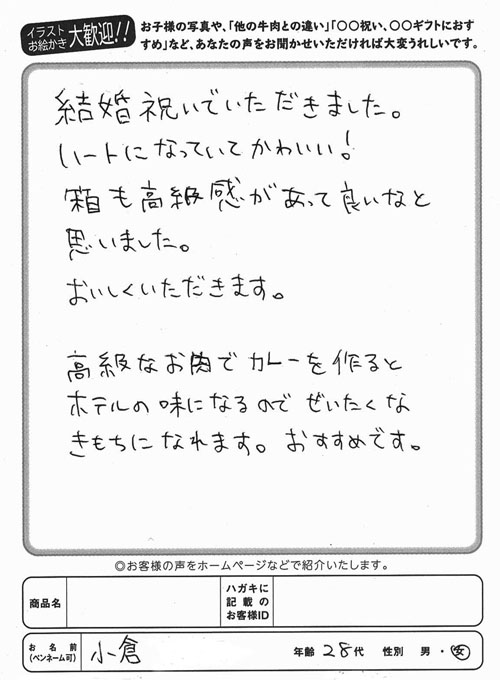 イラスト
お絵かき 大歓迎!!
お子様の写真や、「他の牛肉との違い」「〇〇祝い、〇〇ギフトにおすすめ」など、あなたの声をお聞かせいただければ大変うれしいです。
結婚祝いでいただきました。
ハートになっていてかわいい!
箱も高級感があって良いなと
思いました。
おいしくいただきます。
高級なお肉でカレーを作ると
ホテルの味になるのでぜいたくな
きもちになれます。おすすめです。
◎お客様の声をホームページなどで紹介いたします。
商品名
ハガキに
記載の
お客様ID
お名前
(ペンネーム可)
小倉
年齢 28代 性別 男・女